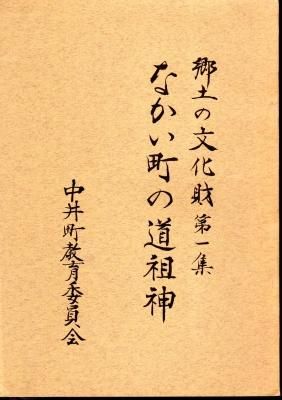 郷土の文化財第一集
なかい町の道祖神
中井町教育委員会